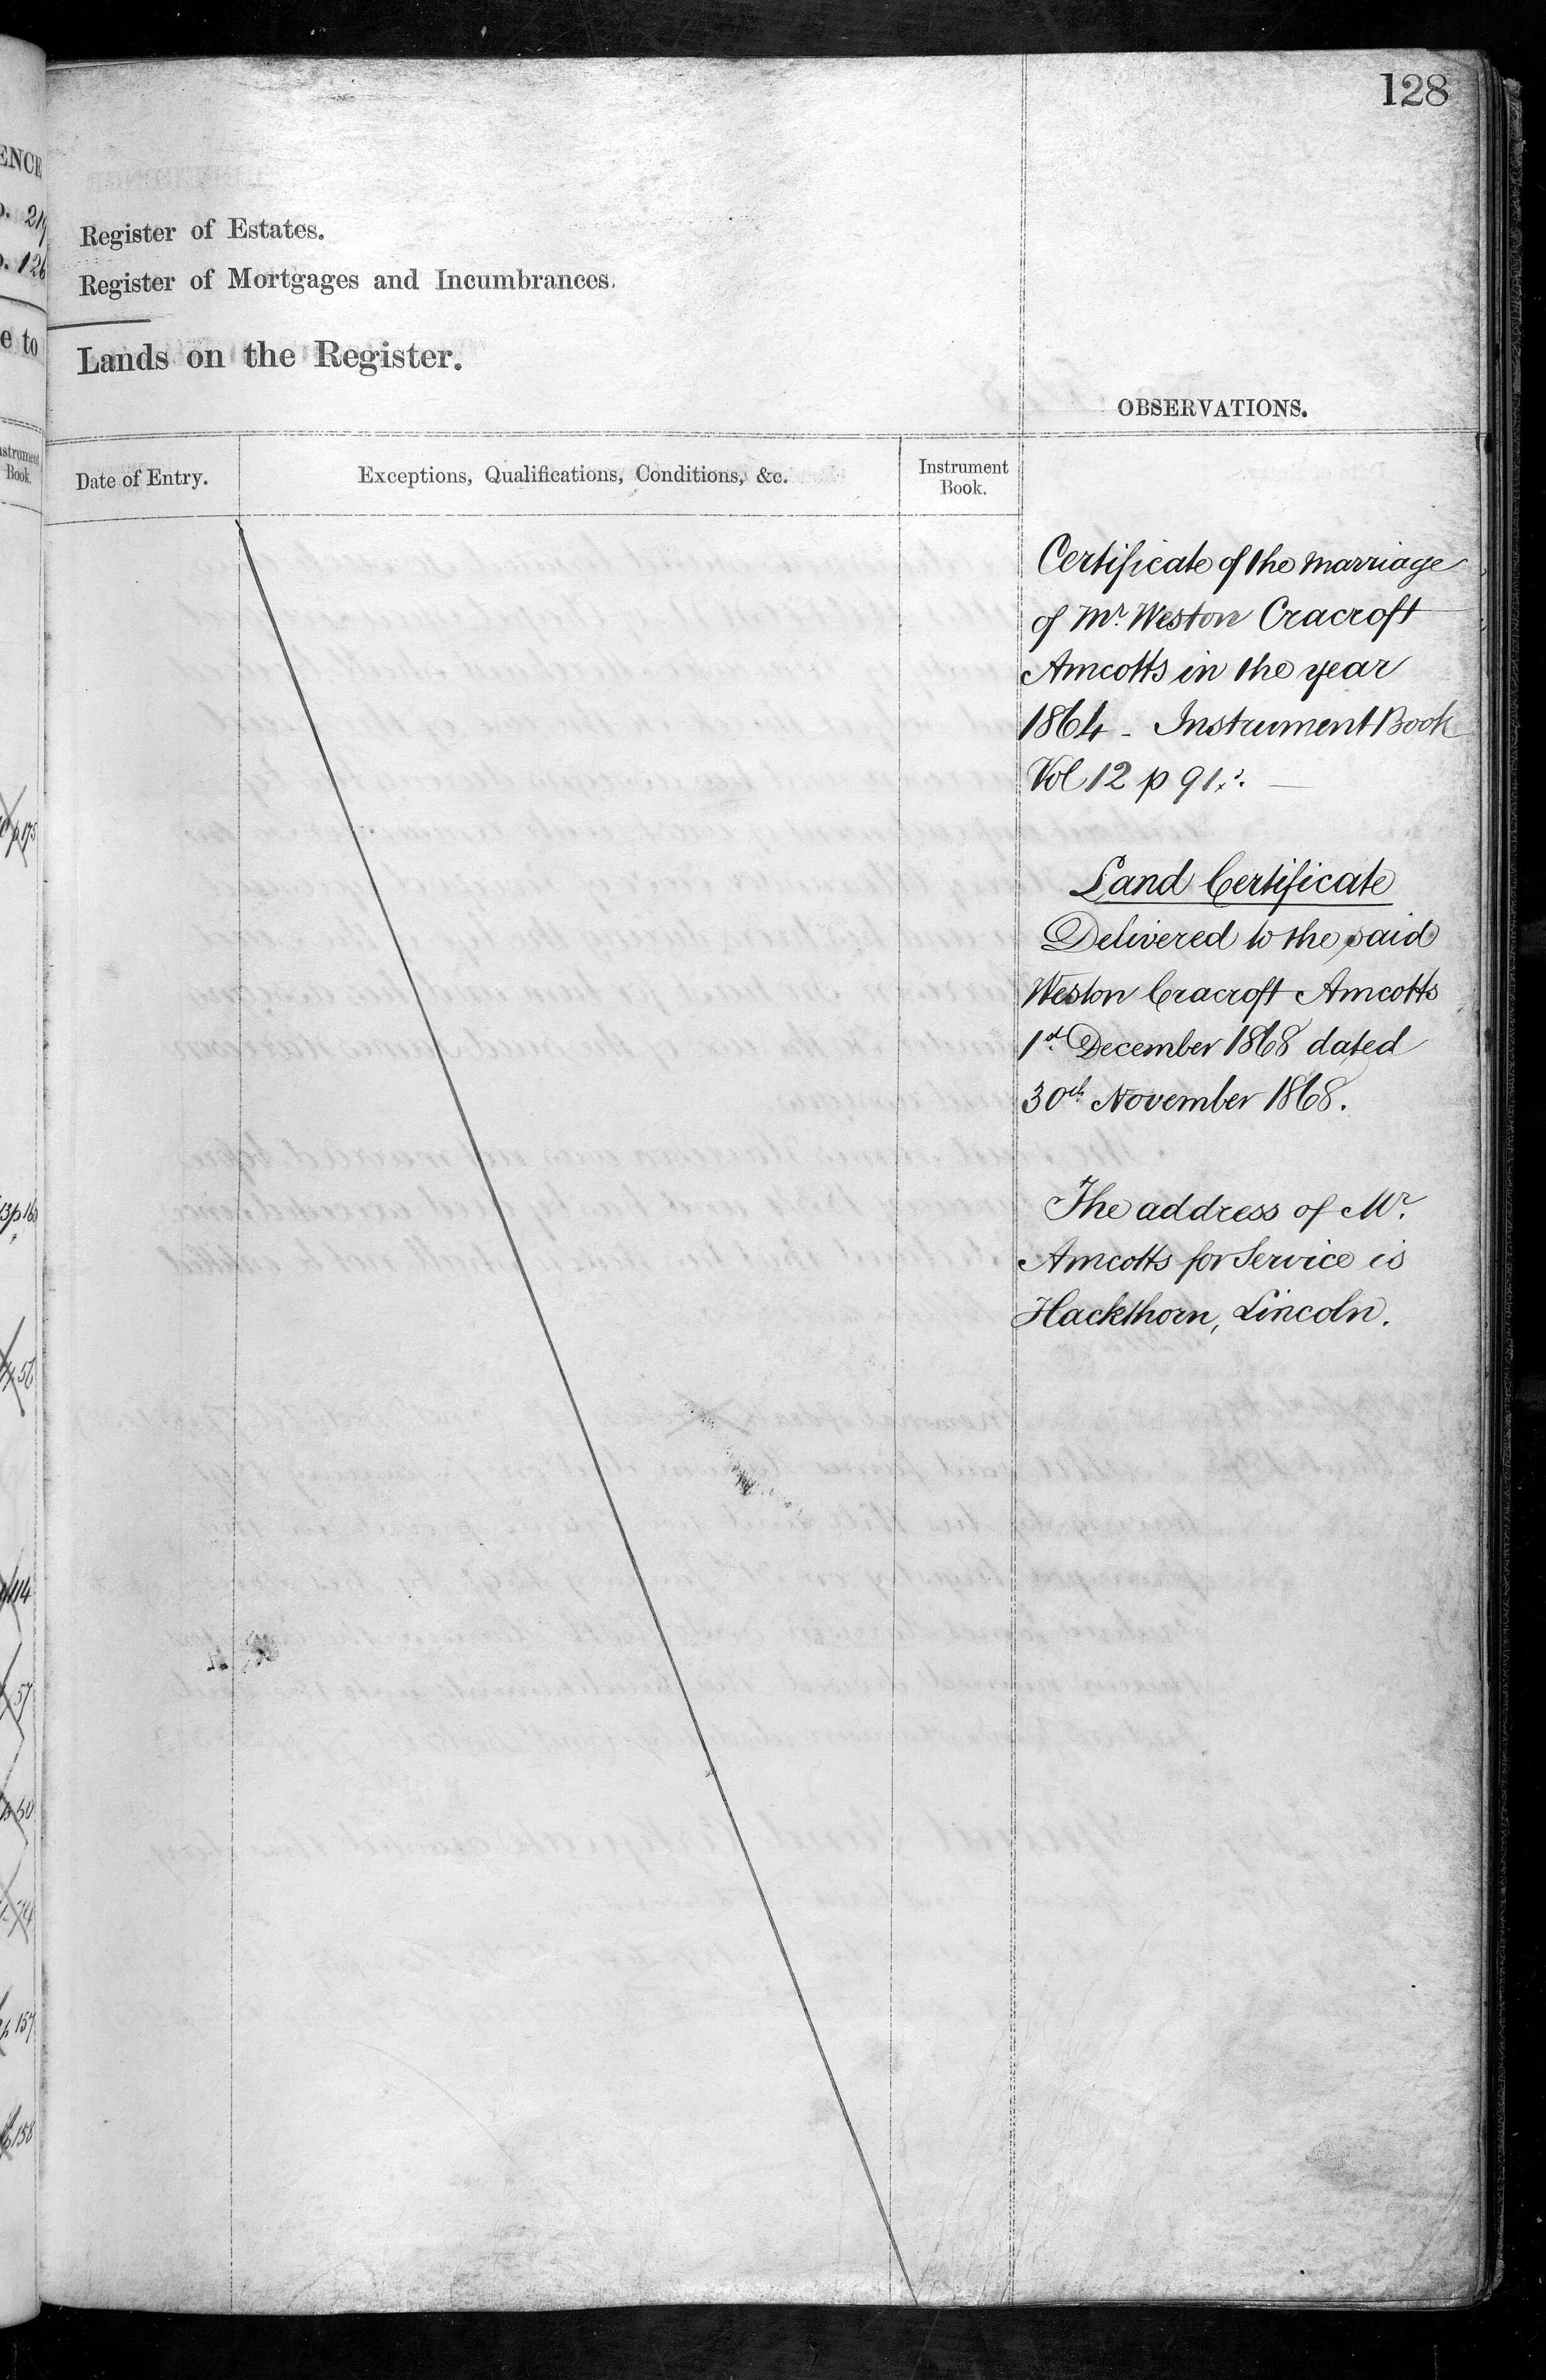 128
Register of Estates.
Register of Mortgages and Incumbrances.
Lands on the Register.
OBSERVATIONS.
Date of Entry.
Exceptions, Qualifications, Conditions, &c.
Instrument
Book.
Certificate of the marriage
of Mr. Weston Cracroft
Amcotts in the year
1864 - Instrument Book
Vol 12 p 91.
Land Certificate
Delivered to the said
Weston Cracroft Amcotts
1st December 1868 dated
30th November 1868.
The address of Mr.
Amcotts for Service is
Hackthorn, Lincoln.